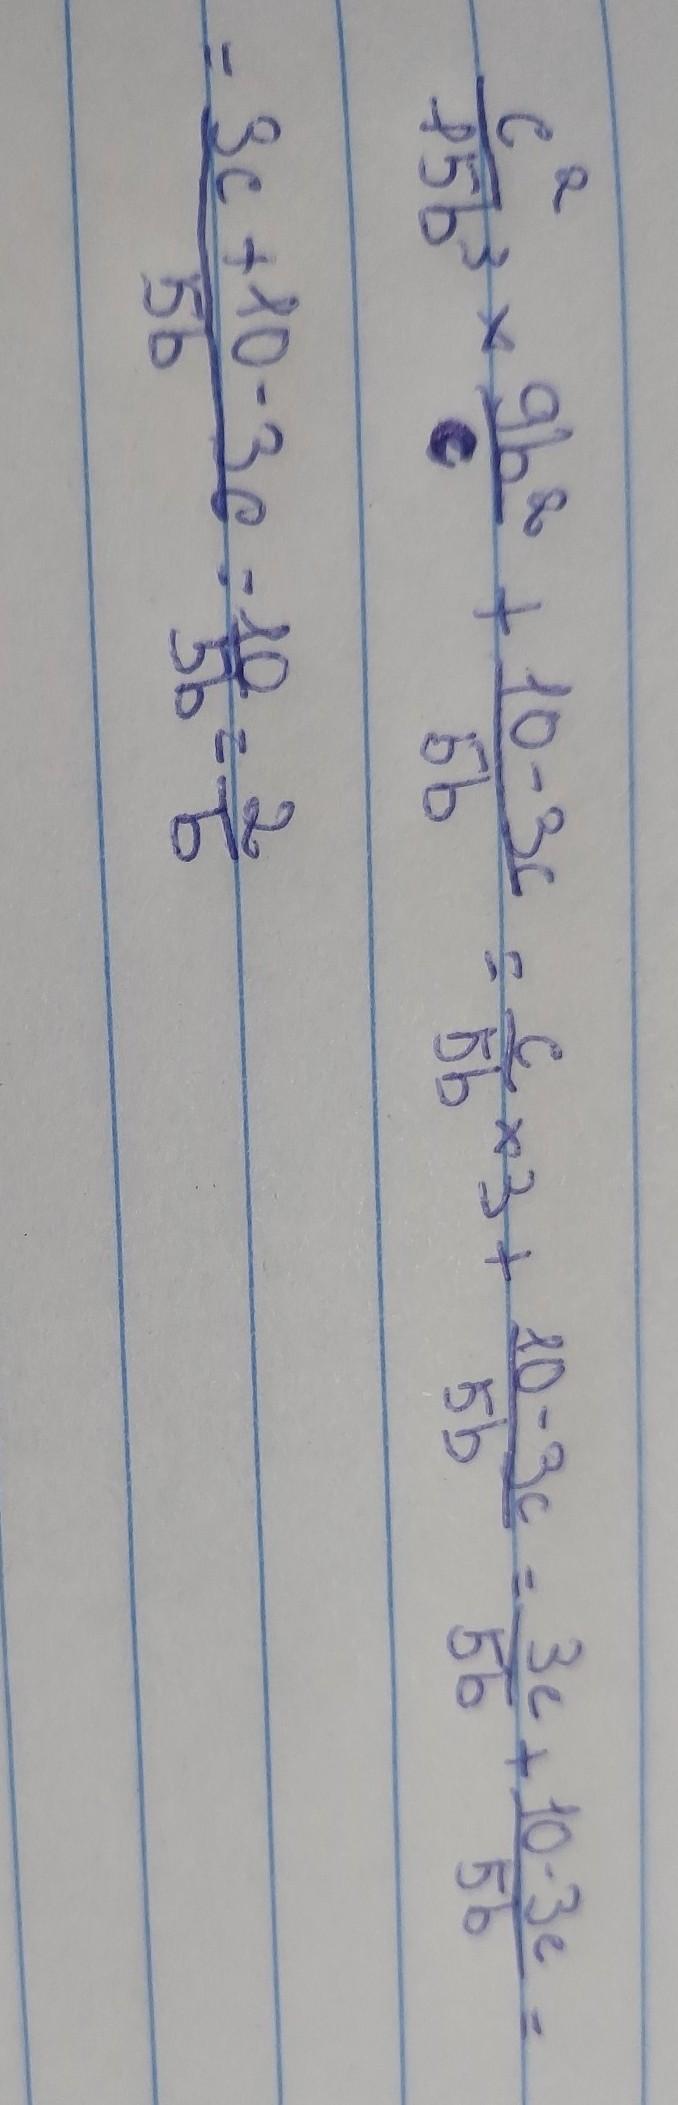 c²/15b³ × 9b²/c + 10-3c/5b = c/5b × 3 + 10-3c/5b = 3c/5b + 10-3c/5b =
= 3c+10-3c/5b = 10/5b = 2/b